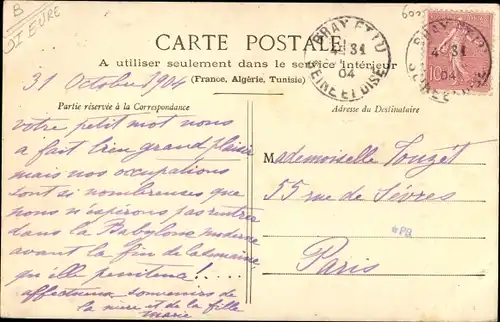 B
St EURE
CARTE POSTALE
A utiliser seulement dans le service intérieur
(France, Algérie, Tunisie)
BRAY ET LU
4 - 31
04
SEINE ET OISE
4 - 31
04
10
31 Octobre 1904
Partie réservée à la Correspondance
Adresse du Destinataire
votre petit mot nous
a fait bien grand plaisir
mais nos occupations
sont si nombreuses que
nous n'espérons pas rentrer
dans la Babylone moderne
avant la fin de la semaine
qu'elle penitence !....
affectueux souvenirs de
la mère et de la fille
Marie
Mademoiselle Touzet
55 rue de Sèvres
Paris